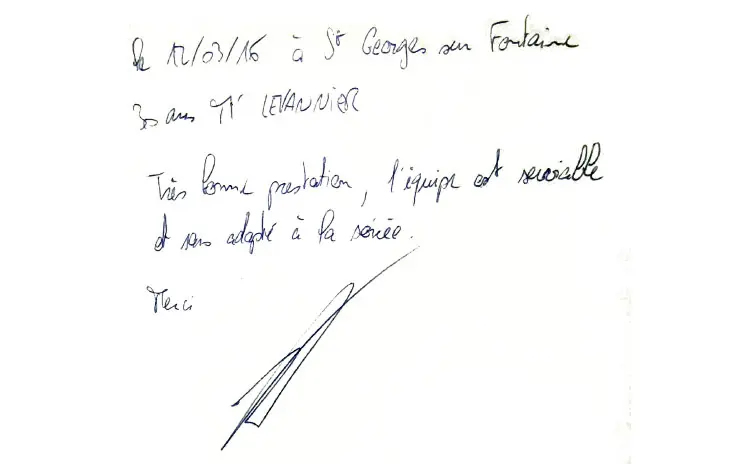 le 12/03/16 à St Georges sur Fontaine
30 ans Mr LEVANNIER
Très bonne prestation, l'équipe est serviable
et sans adapté à la soirée.
Merci